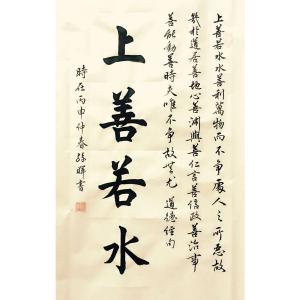 上善若水水善利萬物而不爭處人之所惡故
幾於道居善地心善淵與善仁言善信政善治事
善能動善時夫唯不爭故無尤 道德經句
上善若水
時在丙申仲春孫暉書